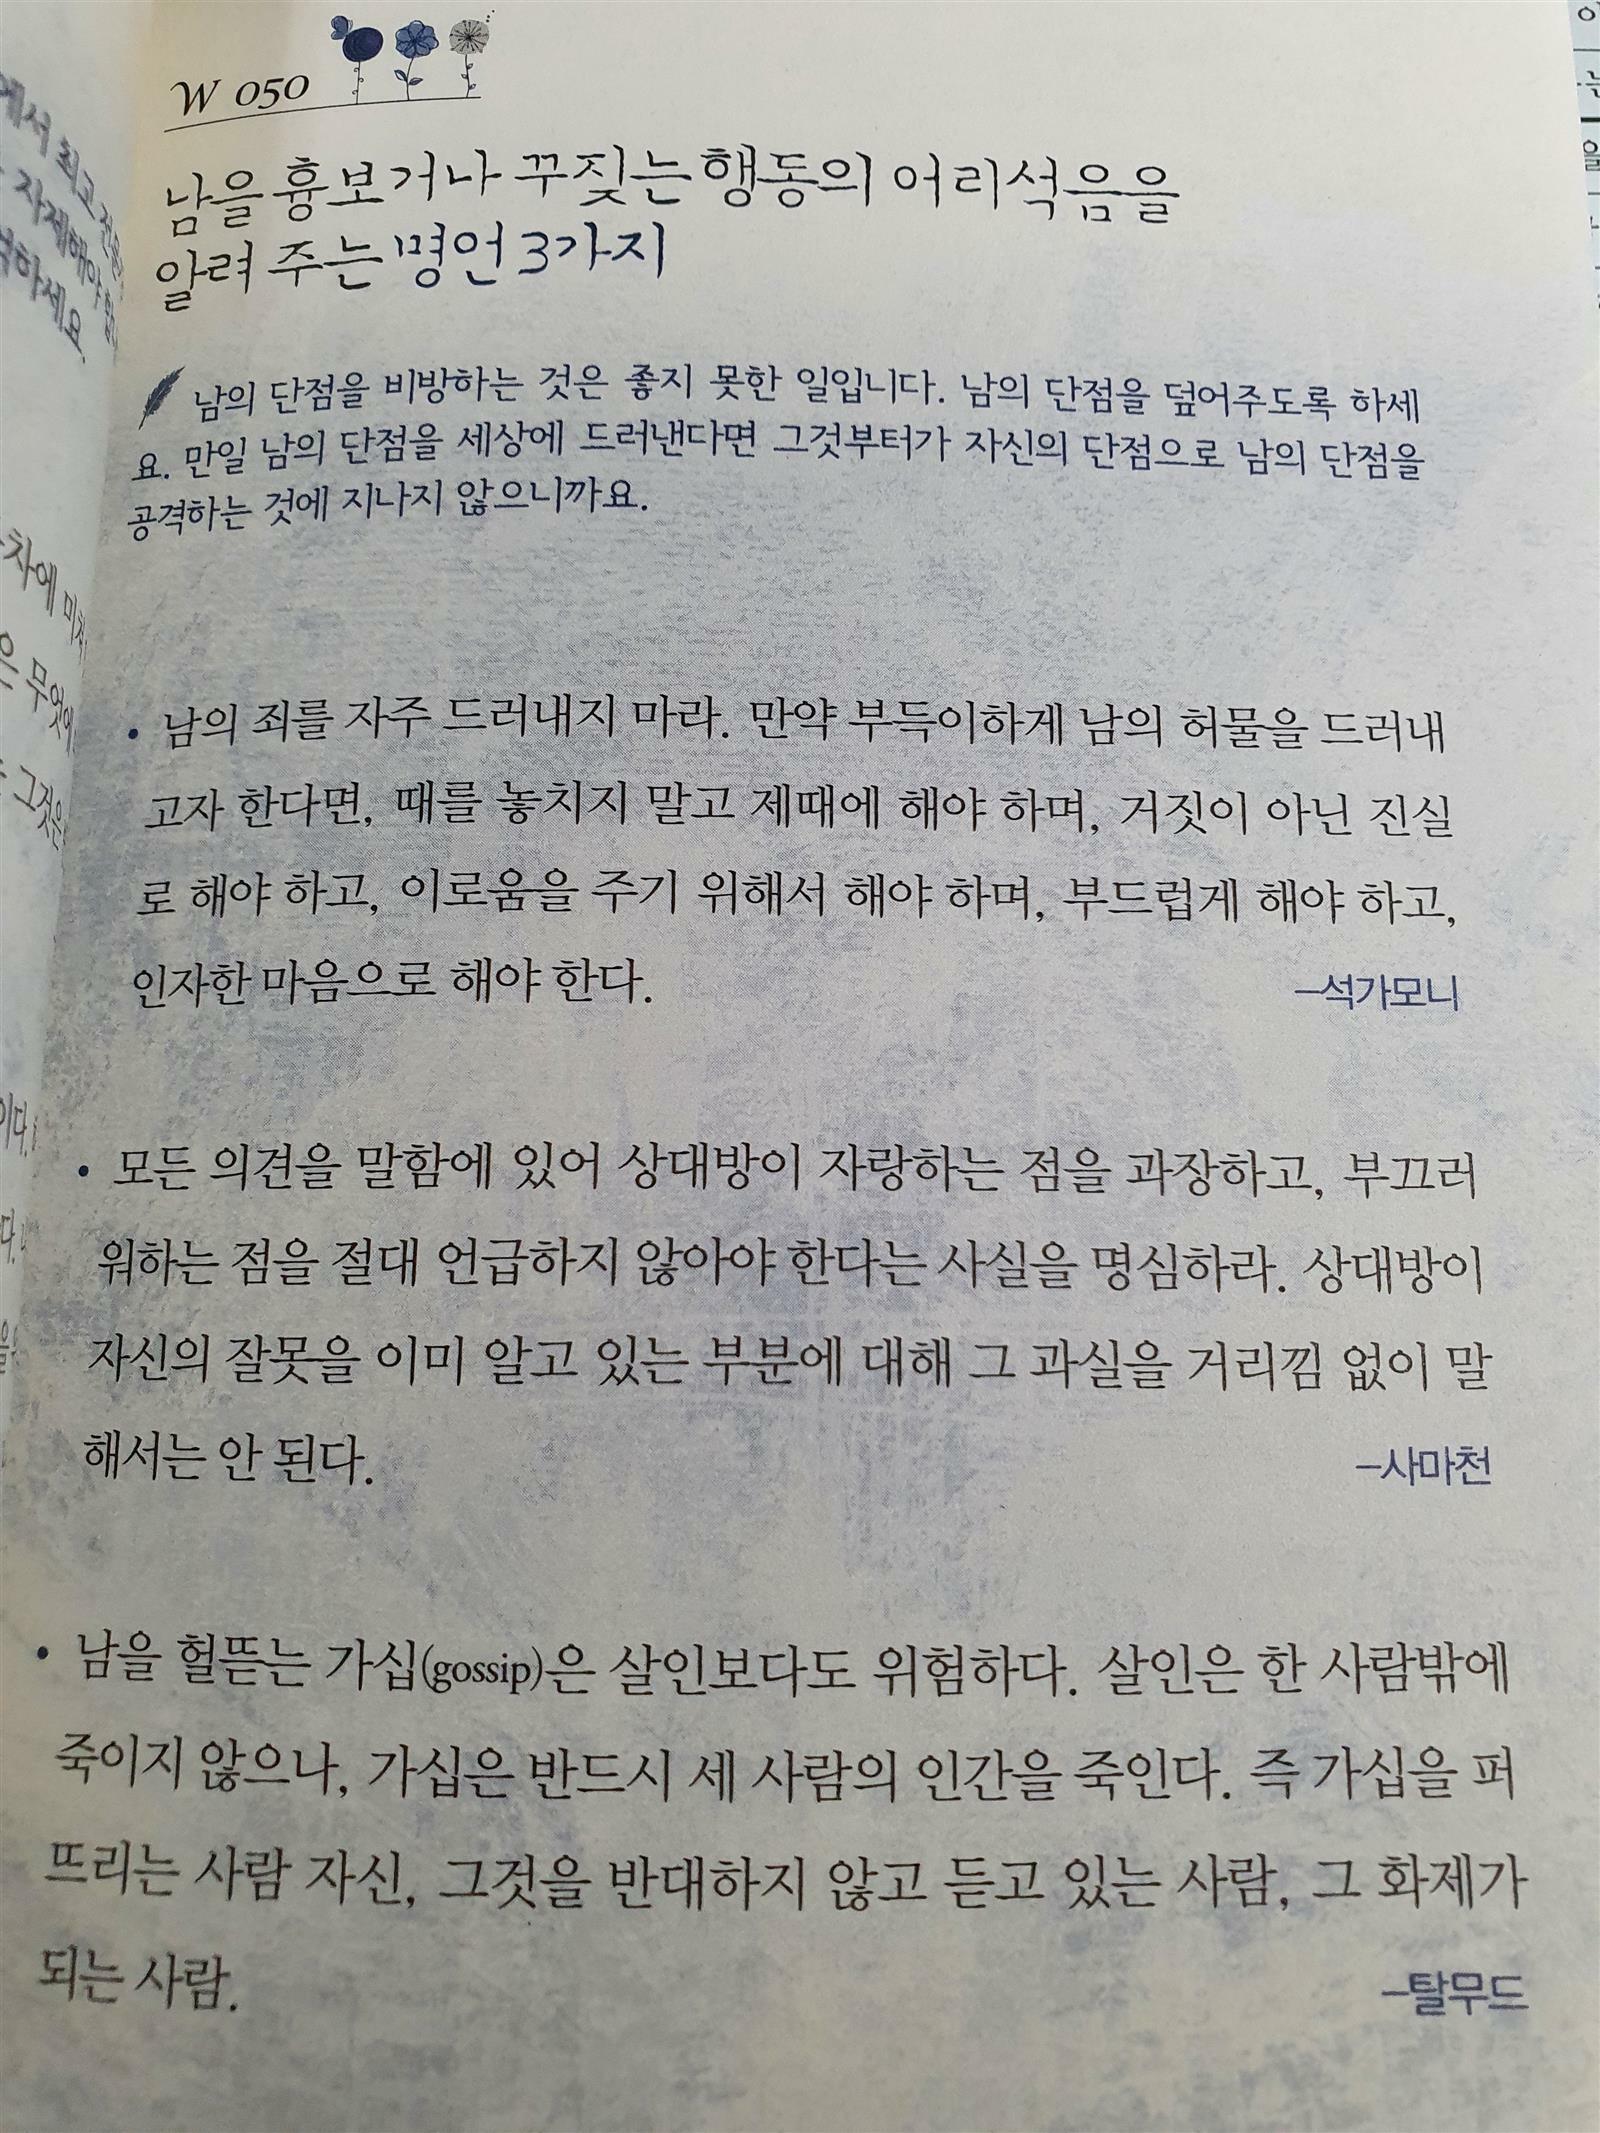 W 050
남을 흉보거나 꾸짖는 행동의 어리석음을
알려 주는 명언 3가지
남의 단점을 비방하는 것은 좋지 못한 일입니다. 남의 단점을 덮어주도록 하세
요. 만일 남의 단점을 세상에 드러낸다면 그것부터가 자신의 단점으로 남의 단점을
공격하는 것에 지나지 않으니까요.
• 남의 죄를 자주 드러내지 마라. 만약 부득이하게 남의 허물을 드러내
고자 한다면, 때를 놓치지 말고 제때에 해야 하며, 거짓이 아닌 진실
로 해야 하고, 이로움을 주기 위해서 해야 하며, 부드럽게 해야 하고,
인자한 마음으로 해야 한다.
–석가모니
• 모든 의견을 말함에 있어 상대방이 자랑하는 점을 과장하고, 부끄러
워하는 점을 절대 언급하지 않아야 한다는 사실을 명심하라. 상대방이
자신의 잘못을 이미 알고 있는 부분에 대해 그 과실을 거리낌 없이 말
해서는 안 된다.
–사마천
• 남을 헐뜯는 가십(gossip)은 살인보다도 위험하다. 살인은 한 사람밖에
죽이지 않으나, 가십은 반드시 세 사람의 인간을 죽인다. 즉 가십을 퍼
뜨리는 사람 자신, 그것을 반대하지 않고 듣고 있는 사람, 그 화제가
되는 사람.
–탈무드